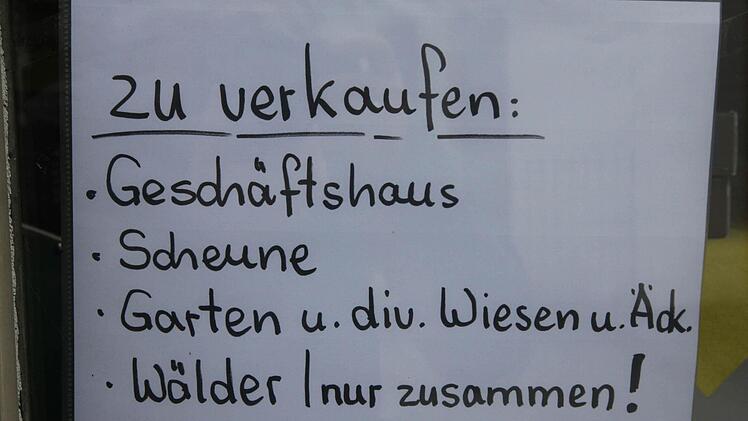 zu verkaufen:
• Geschäftshaus
• Scheune
• Garten u. div. Wiesen u. Äck.
• Wälder | nur zusammen!